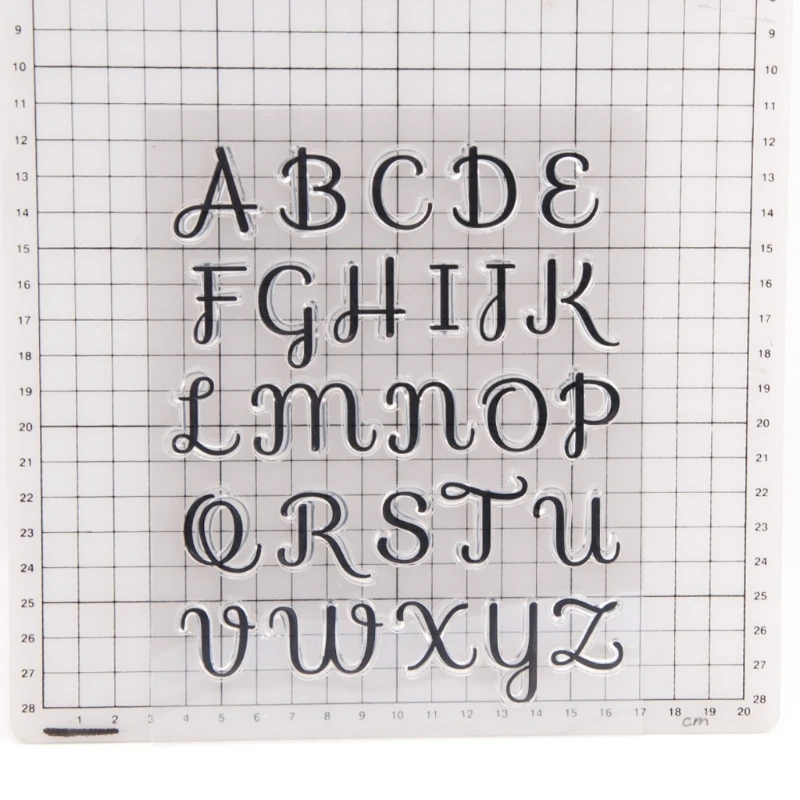 9 9
10 10
11 11
12 12
13 A B C D E 13
14 14
15 15
16 16
17 F G H I J K 17
18 18
19 19
20 L M N O P 20
21 21
22 22
23 Q R S T U 23
24 24
25 25
26 V W X Y Z 26
27 27
28 28
1 2 3 4 5 6 7 8 9 10 11 12 13 14 15 16 17 18 19 20
cm